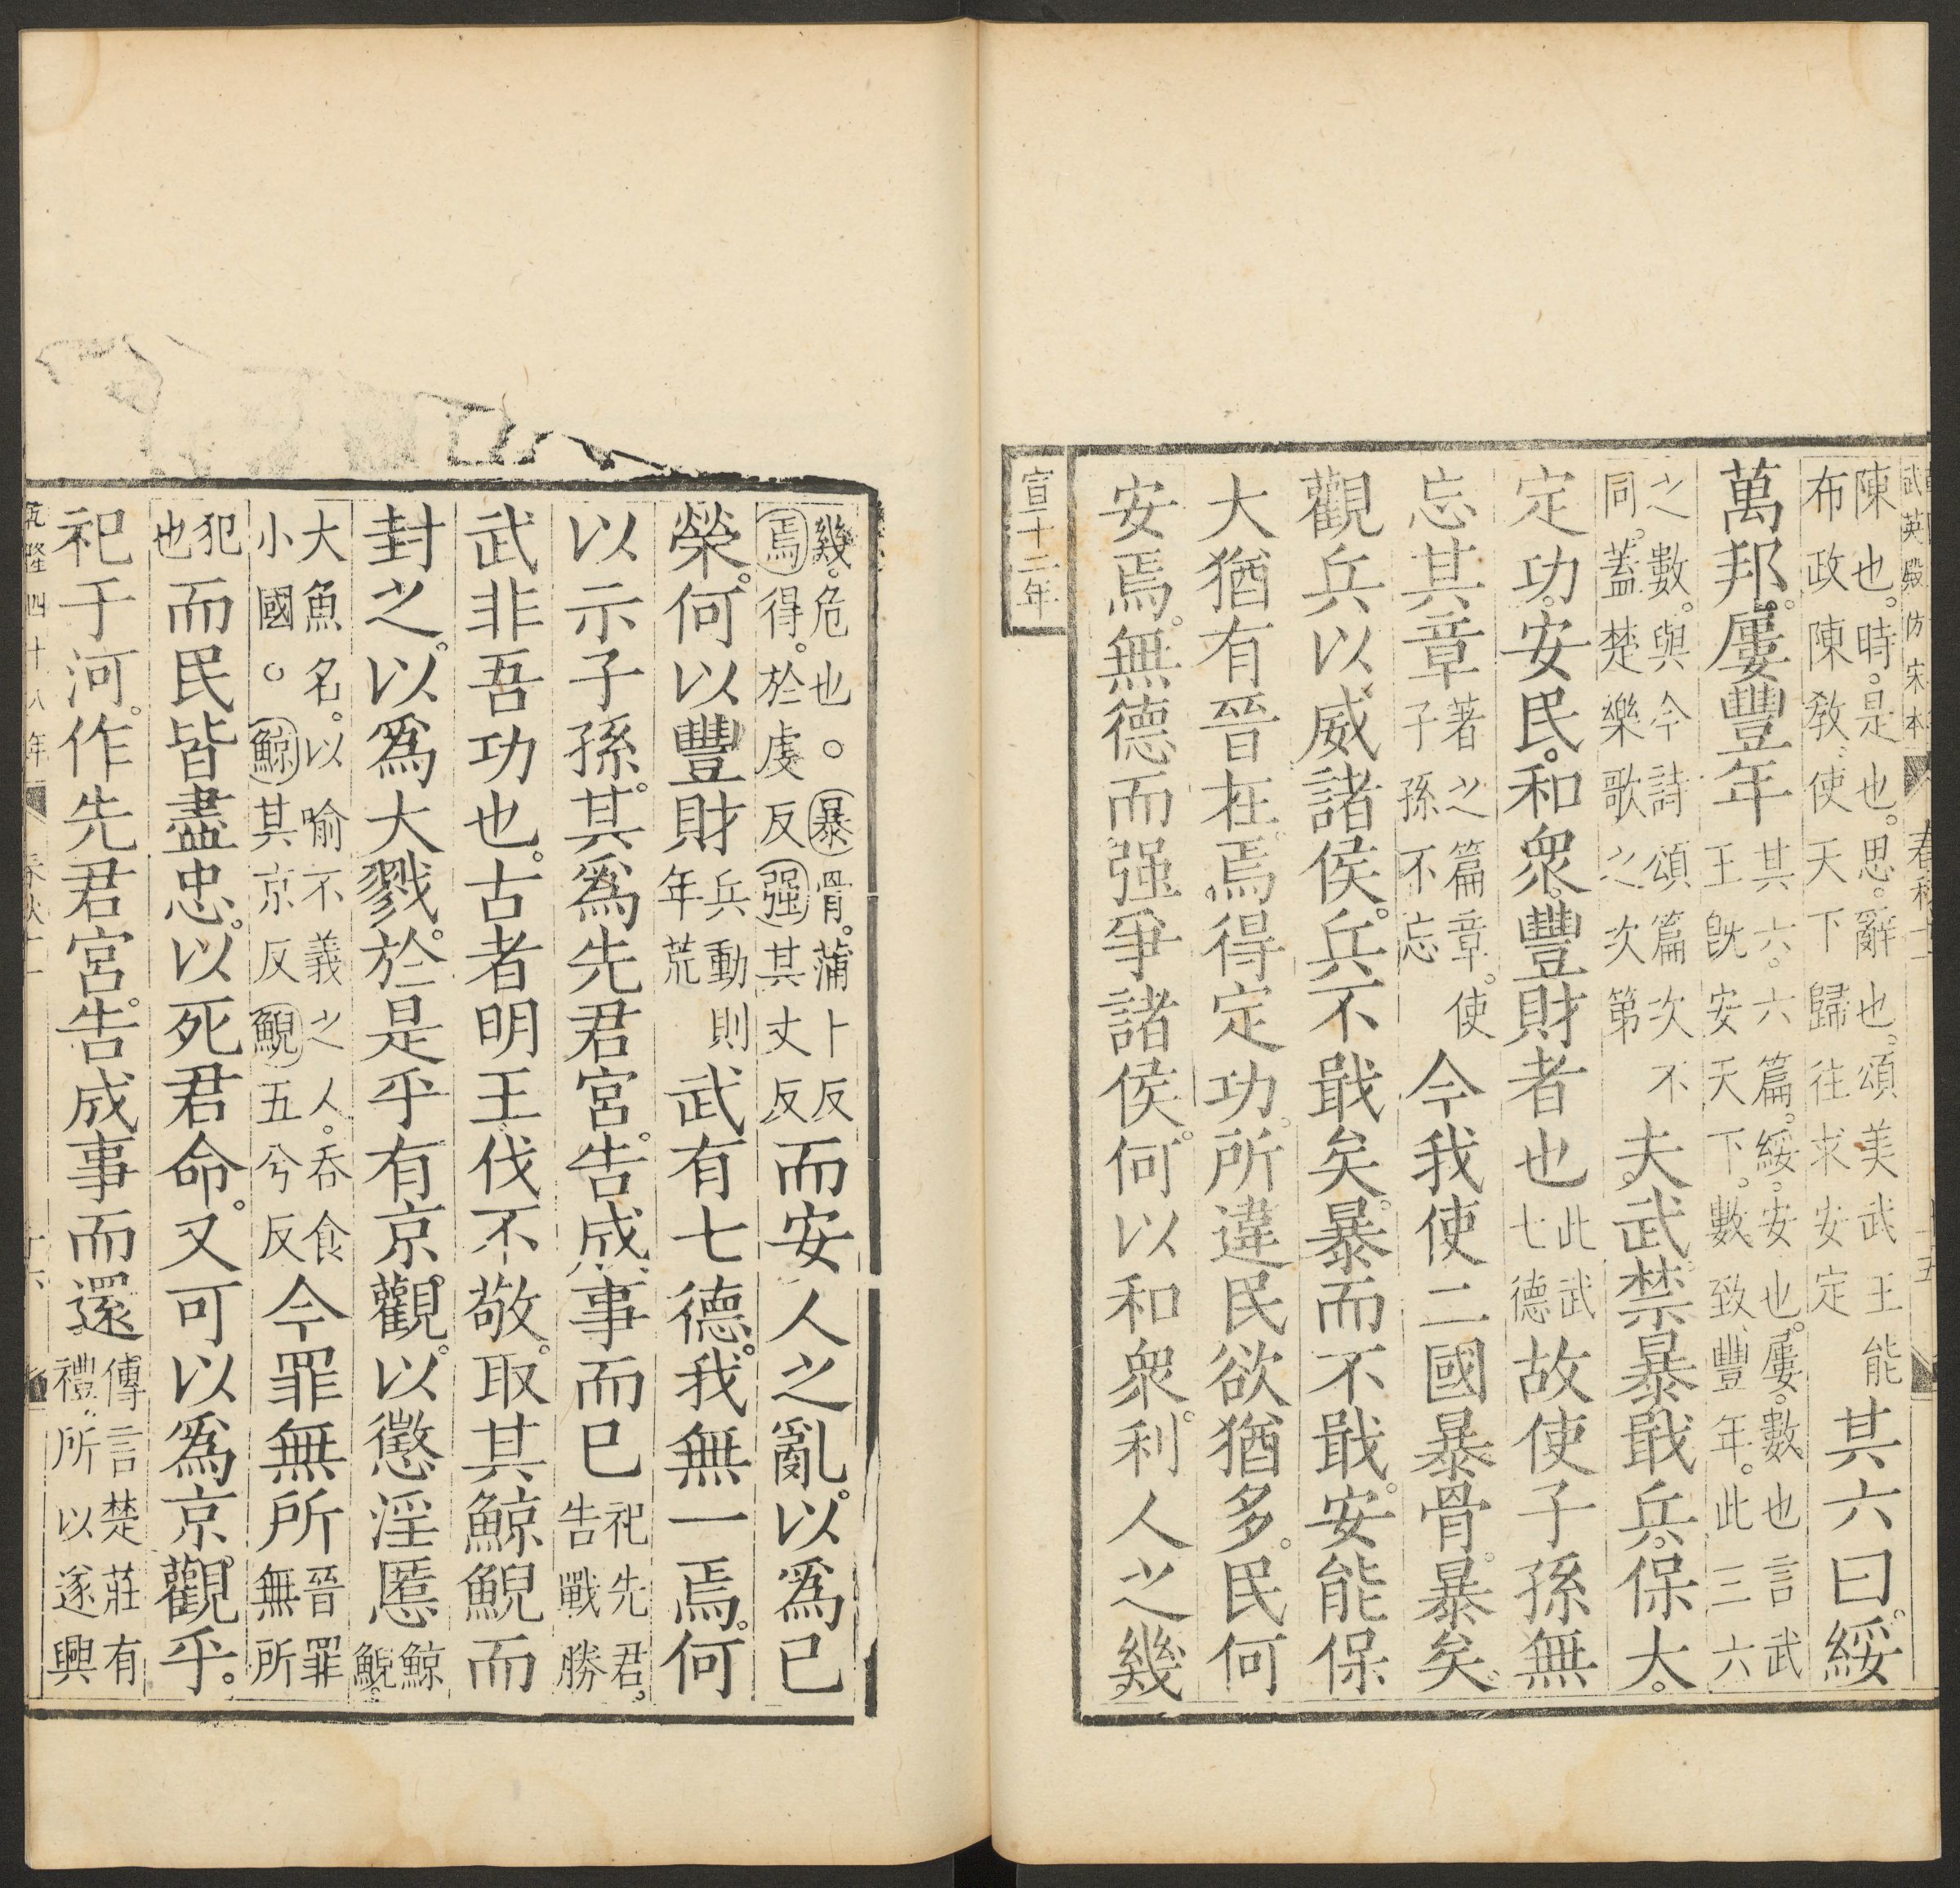 武英殿仿宋本 春秋十一 十五
陳也。時。是也。思。辭也。頌美武王能
布政陳教。使天下歸往求安定
其六曰。綏
萬邦。屢豐年
其六。六篇。綏。安也。屢。數也言武
王旣安天下。數致豐年。此三六
之數。與今詩頌篇次不
同。蓋楚樂歌之次第
夫武。禁暴戢兵。保大。
定功。安民。和衆。豐財者也
此武
七德
故使子孫無
忘其章
著之篇章。使
子孫不忘
今我使二國暴骨。暴矣。
觀兵以威諸侯。兵不戢矣。暴而不戢。安能保
大猶有晉在。焉得定功。所違民欲猶多。民何
安焉。無德而强爭諸侯。何以和衆。利人之幾
宣十二年
幾。危也○暴骨。蒲卜反
焉得。於虔反强其丈反
而安人之亂。以爲己
榮。何以豐財
兵動則
年荒
武有七德。我無一焉。何
以示子孫。其爲先君宮。告成事而已
祀先君。
告戰勝
武非吾功也。古者明王伐不敬。取其鯨鯢而
封之。以爲大戮。於是乎有京觀。以懲淫慝
鯨
鯢。
大魚名。以喻不義之人。吞食
小國○鯨其京反鯢五兮反
今罪無所
晉罪
無所
犯
也
而民皆盡忠。以死君命。又可以爲京觀乎。
祀于河。作先君宮。告成事而還
傳言楚莊有
禮。所以遂興
乾隆四十八年 春秋十一 十六